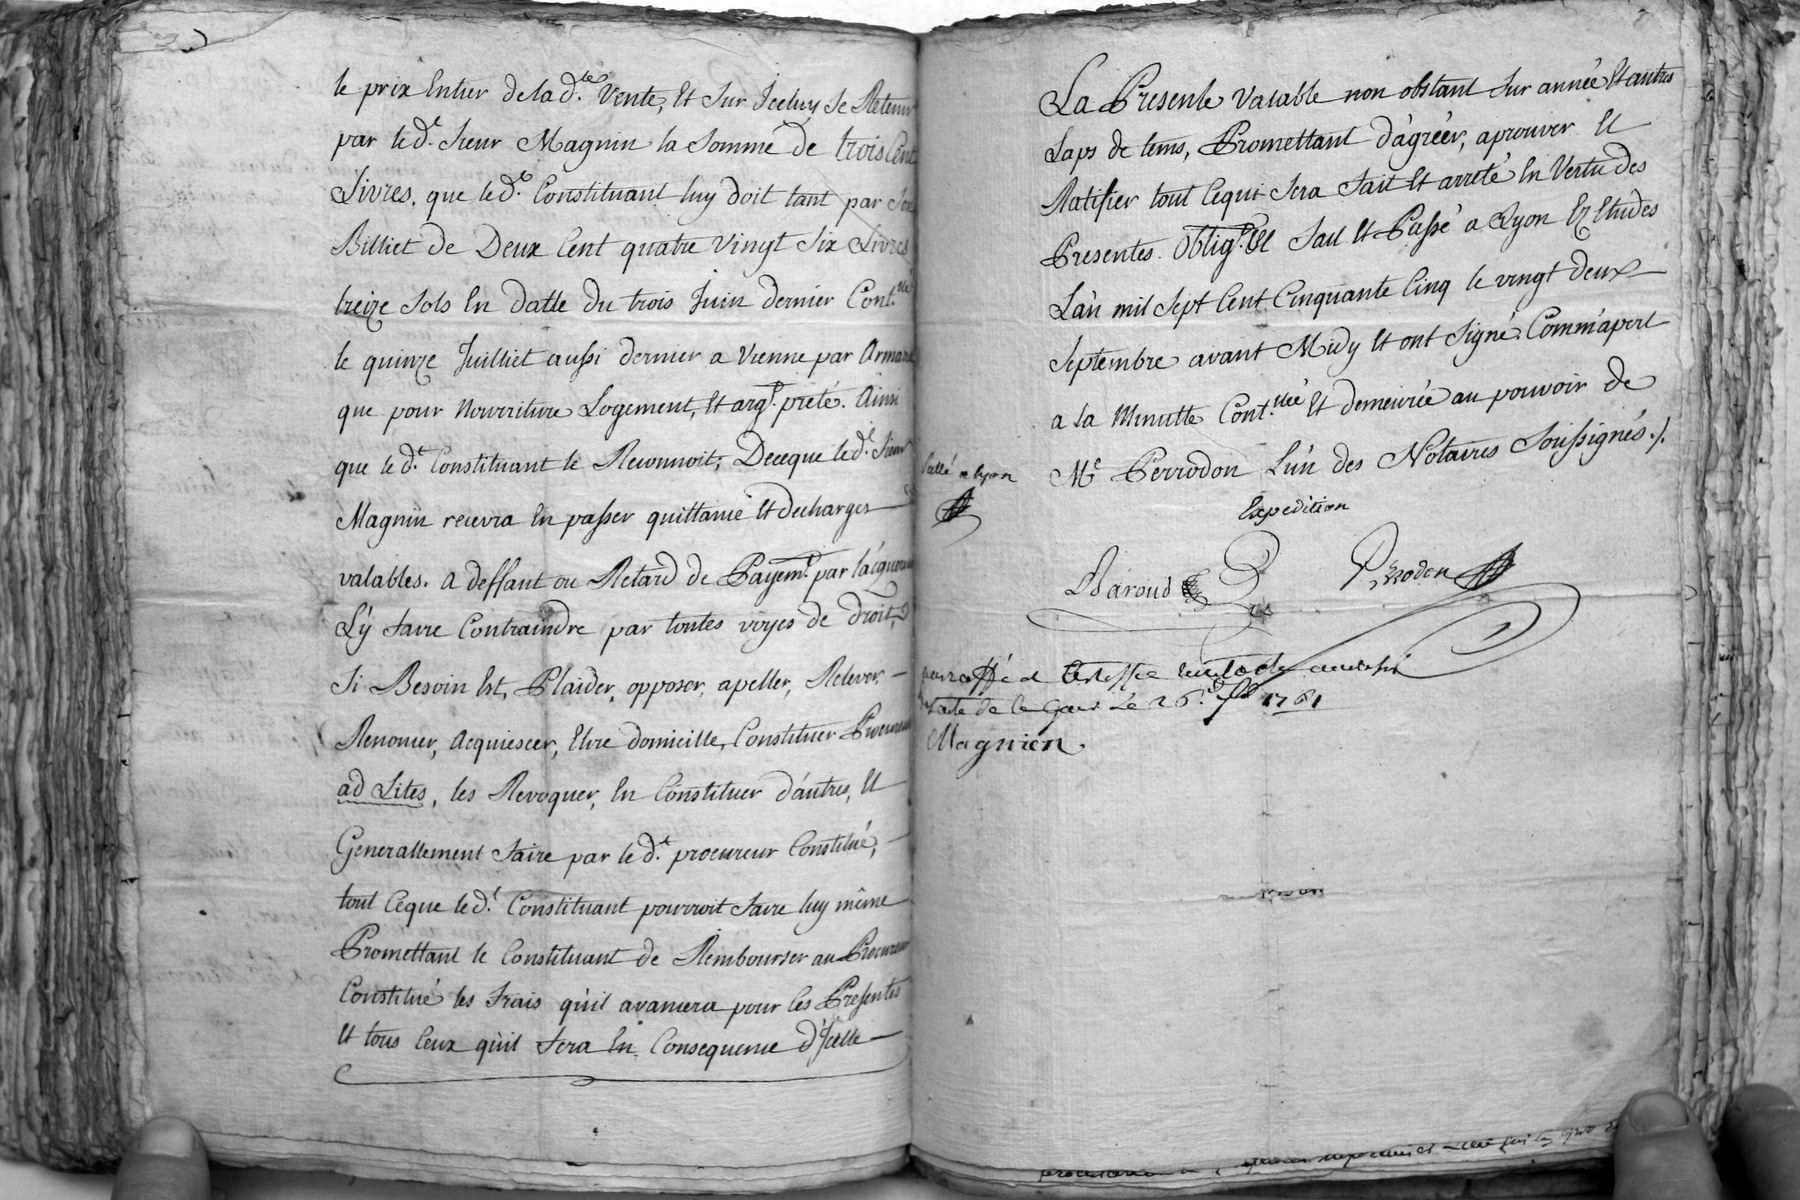 le prix Entier de la d.te Vente, Et Sur Iceluy Se Retenir
par le d.t Sieur Magnin la Somme de trois Cent
Livres, que le d.t Constituant luy doit tant par Son
Billiet de Deux Cent quatre vingt Six Livres
treize Sols En datte du trois Juin dernier Cont.llé
le quinze Juilliet aussi dernier a Vienne par Armand
que pour Nourriture Logement, Et arg.t prété. Ainsi
que le d.t Constituant le Reconnoit, De ceque le d.t Sieur
Magnin recevra En passer quittance Et decharges
valables. a deffaut ou Retard de Payem.t par l'acquereur
L'y faire Contraindre par toutes voyes de droit,
Si Besoin Est, Plaider, opposer, apeller, Relever,
Renoncer, Acquiescer, Elire domicille, Constituer Procureurs
ad Lites, les Revoquer, En Constituer d'autres, Et
Generallement faire par le d.t procureur Constitué,
tout Ceque le d.t Constituant pourroit faire luy même
Promettant le Constituant de Rembourser au Procureur
Constitué les frais qu'il avancera pour les Presentes
Et tous Ceux qu'il fera En Consequence d'Icelle
La Presente Valable non obstant Sur année Et autres
Laps de tems, Promettant d'agréer, aprouver Et
Ratifier tout Cequi Sera fait Et arreté En Vertu des
Presentes. Oblig.t &a fait Et Passé a Lyon Ez Etudes
L'an mil Sept Cent Cinquante Cinq le vingt deux
Septembre avant Midy Et ont Signé. Comm'apert
a la Minutte Cont.llée Et demeurée au pouvoir de
M.e Perrodon L'un des Notaires Soussignés./.
Scellé a lyon
Expedition
Baroud
Perrodon
paraffé et
date de ce jour Le 26.e 1761
Magnien.